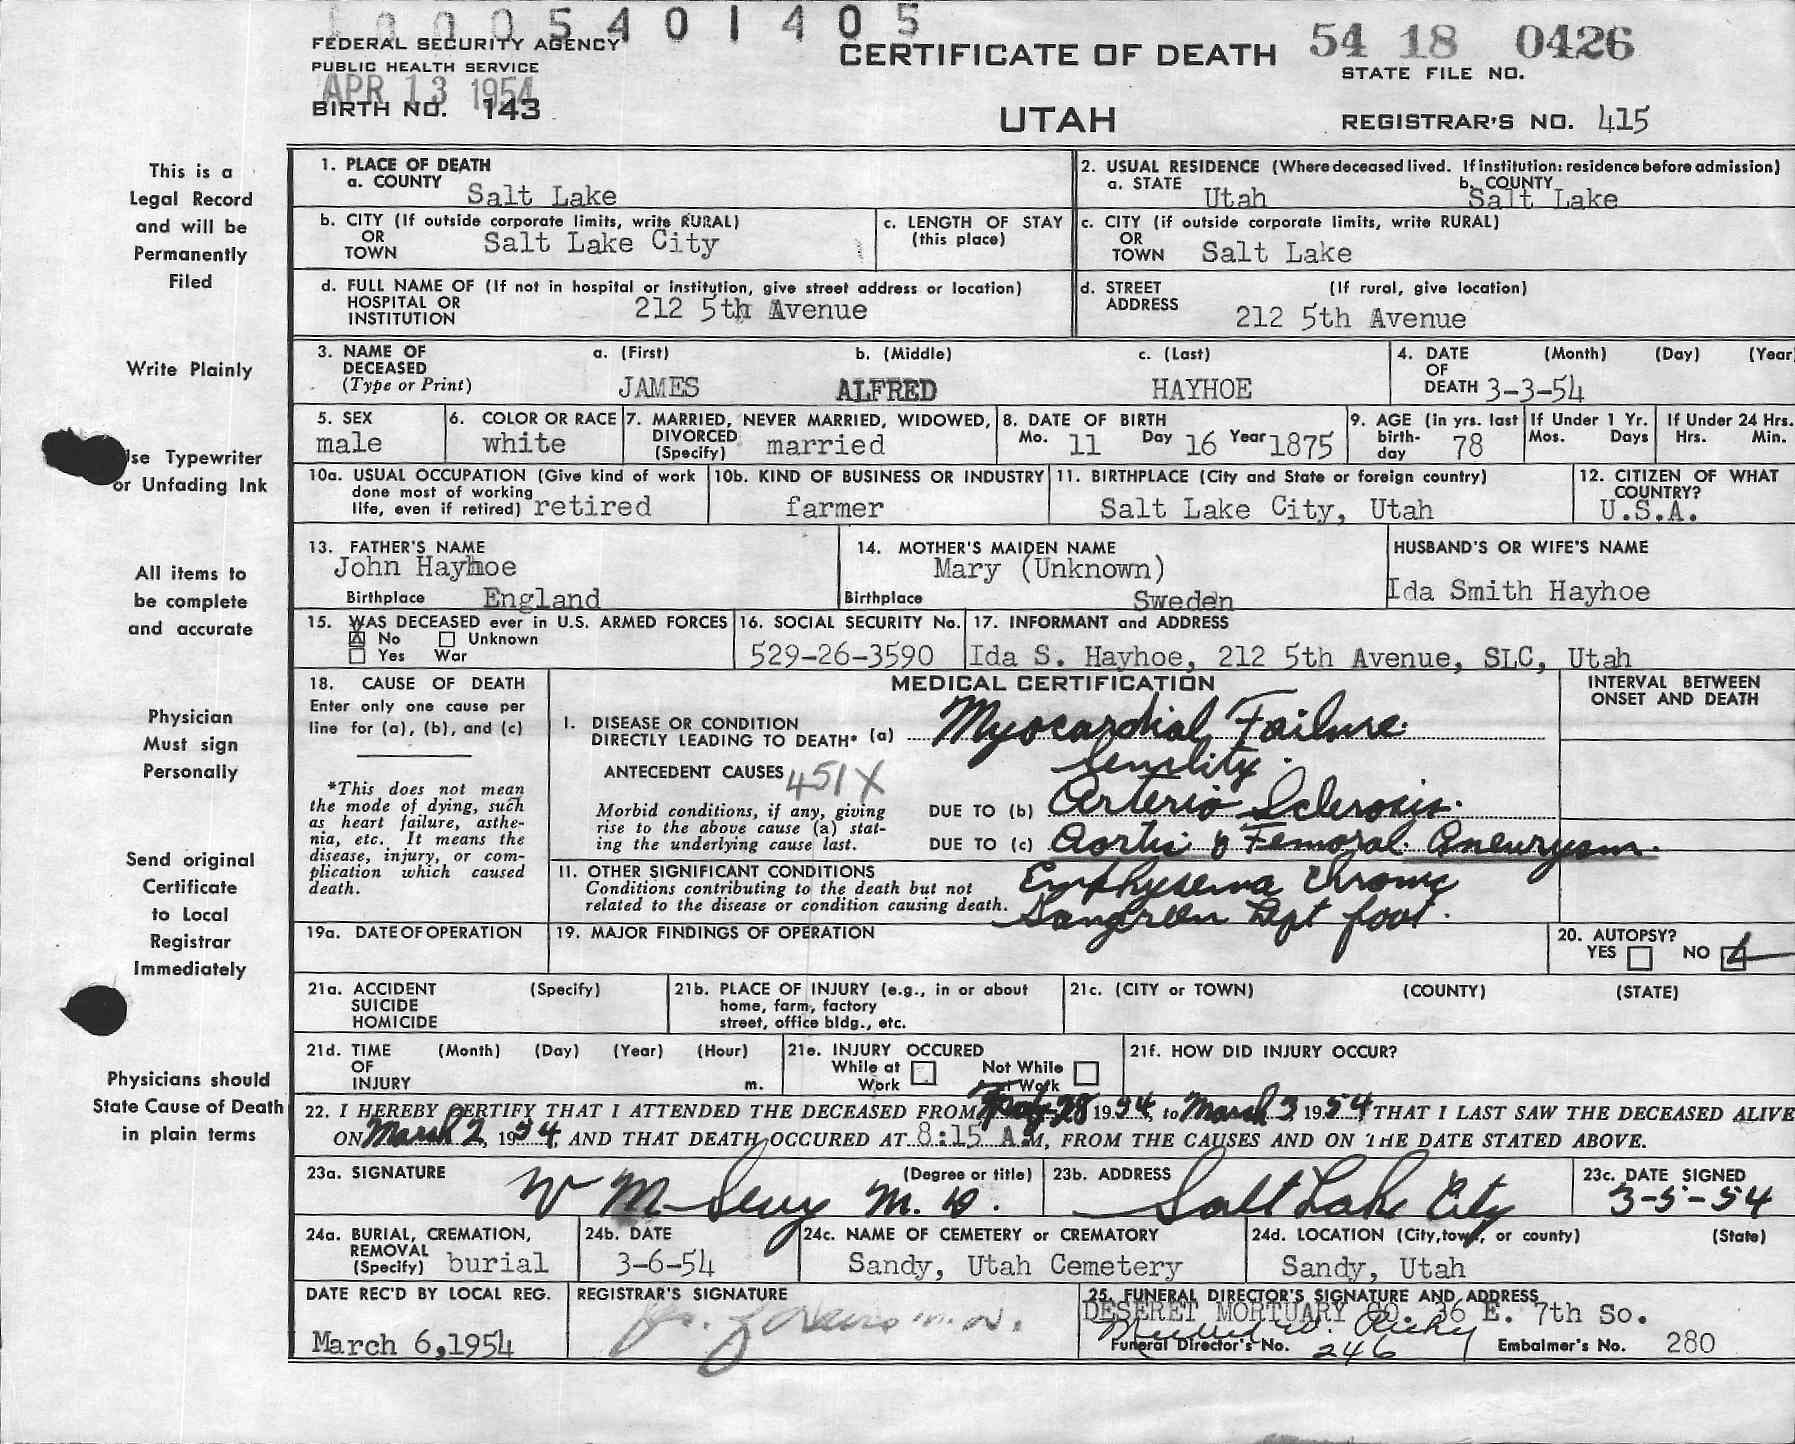 1 0 0 0 5 4 0 1 4 0 5
FEDERAL SECURITY AGENCY
PUBLIC HEALTH SERVICE
APR 13 1954
BIRTH NO. 143
CERTIFICATE OF DEATH
UTAH
54 18 0426
STATE FILE NO.
REGISTRAR'S NO. 415
This is a
Legal Record
and will be
Permanently
Filed
Write Plainly
Use Typewriter
or Unfading Ink
All items to
be complete
and accurate
Physician
Must sign
Personally
Send original
Certificate
to Local
Registrar
Immediately
Physicians should
State Cause of Death
in plain terms
1. PLACE OF DEATH
a. COUNTY Salt Lake
2. USUAL RESIDENCE (Where deceased lived. If institution: residence before admission)
a. STATE Utah b. COUNTY Salt Lake
b. CITY (If outside corporate limits, write RURAL)
OR
TOWN Salt Lake City
c. LENGTH OF STAY
(this place)
c. CITY (if outside corporate limits, write RURAL)
OR
TOWN Salt Lake
d. FULL NAME OF (If not in hospital or institution, give street address or location)
HOSPITAL OR
INSTITUTION 212 5th Avenue
d. STREET (If rural, give location)
ADDRESS
212 5th Avenue
3. NAME OF a. (First) b. (Middle) c. (Last)
DECEASED
(Type or Print) JAMES ALFRED HAYHOE
4. DATE (Month) (Day) (Year
OF
DEATH 3-3-54
5. SEX
male
6. COLOR OR RACE
white
7. MARRIED, NEVER MARRIED, WIDOWED,
DIVORCED
(Specify) married
8. DATE OF BIRTH
Mo. 11 Day 16 Year 1875
9. AGE (in yrs. last
birth-
day 78
If Under 1 Yr.
Mos. Days
If Under 24 Hrs.
Hrs. Min.
10a. USUAL OCCUPATION (Give kind of work
done most of working
life, even if retired) retired
10b. KIND OF BUSINESS OR INDUSTRY
farmer
11. BIRTHPLACE (City and State or foreign country)
Salt Lake City, Utah
12. CITIZEN OF WHAT
COUNTRY?
U.S.A.
13. FATHER'S NAME
John Hayhoe
Birthplace England
14. MOTHER'S MAIDEN NAME
Mary (Unknown)
Birthplace Sweden
HUSBAND'S OR WIFE'S NAME
Ida Smith Hayhoe
15. WAS DECEASED ever in U.S. ARMED FORCES
X No Unknown
Yes War
16. SOCIAL SECURITY No.
529-26-3590
17. INFORMANT and ADDRESS
Ida S. Hayhoe, 212 5th Avenue, SLC, Utah
18. CAUSE OF DEATH
Enter only one cause per
line for (a), (b), and (c)
*This does not mean
the mode of dying, such
as heart failure, asthe-
nia, etc. It means the
disease, injury, or com-
plication which caused
death.
MEDICAL CERTIFICATION
INTERVAL BETWEEN
ONSET AND DEATH
I. DISEASE OR CONDITION
DIRECTLY LEADING TO DEATH* (a) Myocardial Failure
Senility.
ANTECEDENT CAUSES 451X
Morbid conditions, if any, giving
rise to the above cause (a) stat-
ing the underlying cause last.
DUE TO (b) Arterio Sclerosis.
DUE TO (c) Aortic & Femoral Aneurysm.
11. OTHER SIGNIFICANT CONDITIONS
Conditions contributing to the death but not
related to the disease or condition causing death.
Emphysema Chronic
Gangreen Left foot.
19a. DATE OF OPERATION
19. MAJOR FINDINGS OF OPERATION
20. AUTOPSY?
YES NO
21a. ACCIDENT (Specify)
SUICIDE
HOMICIDE
21b. PLACE OF INJURY (e.g., in or about
home, farm, factory
street, office bldg., etc.
21c. (CITY or TOWN) (COUNTY) (STATE)
21d. TIME (Month) (Day) (Year) (Hour)
OF
INJURY m.
21e. INJURY OCCURED
While at Work
Not While at Work
21f. HOW DID INJURY OCCUR?
22. I HEREBY CERTIFY THAT I ATTENDED THE DECEASED FROM 28 1954, to March 3 1954 THAT I LAST SAW THE DECEASED ALIVE
ON March 2, 1954, AND THAT DEATH OCCURED AT 8:15 A.M, FROM THE CAUSES AND ON THE DATE STATED ABOVE.
23a. SIGNATURE (Degree or title)
W M Sevy M.D.
23b. ADDRESS
Salt Lake City
23c. DATE SIGNED
3-5-54
24a. BURIAL, CREMATION,
REMOVAL
(Specify) burial
24b. DATE
3-6-54
24c. NAME OF CEMETERY or CREMATORY
Sandy, Utah Cemetery
24d. LOCATION (City, town, or county) (State)
Sandy, Utah
DATE REC'D BY LOCAL REG.
March 6, 1954
REGISTRAR'S SIGNATURE
25. FUNERAL DIRECTOR'S SIGNATURE AND ADDRESS
DESERET MORTUARY CO. 36 E. 7th So.
Funeral Director's No. 246 Embalmer's No. 280